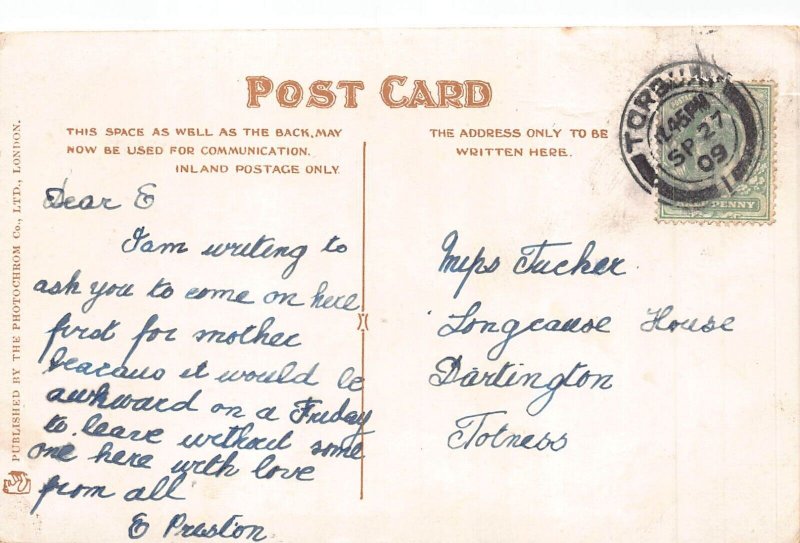 POST CARD
THIS SPACE AS WELL AS THE BACK, MAY
NOW BE USED FOR COMMUNICATION.
INLAND POSTAGE ONLY.
THE ADDRESS ONLY TO BE
WRITTEN HERE.
PUBLISHED BY THE PHOTOCHROM Co., LTD., LONDON.
Dear E
I am writing to
ask you to come on here
first for mother
beacaus it would be
awkward on a Friday
to leave without some
one here with love
from all
E Preston
Miss Tucker
Longcause House
Dartington
Totness
SP 27
09
PENNY